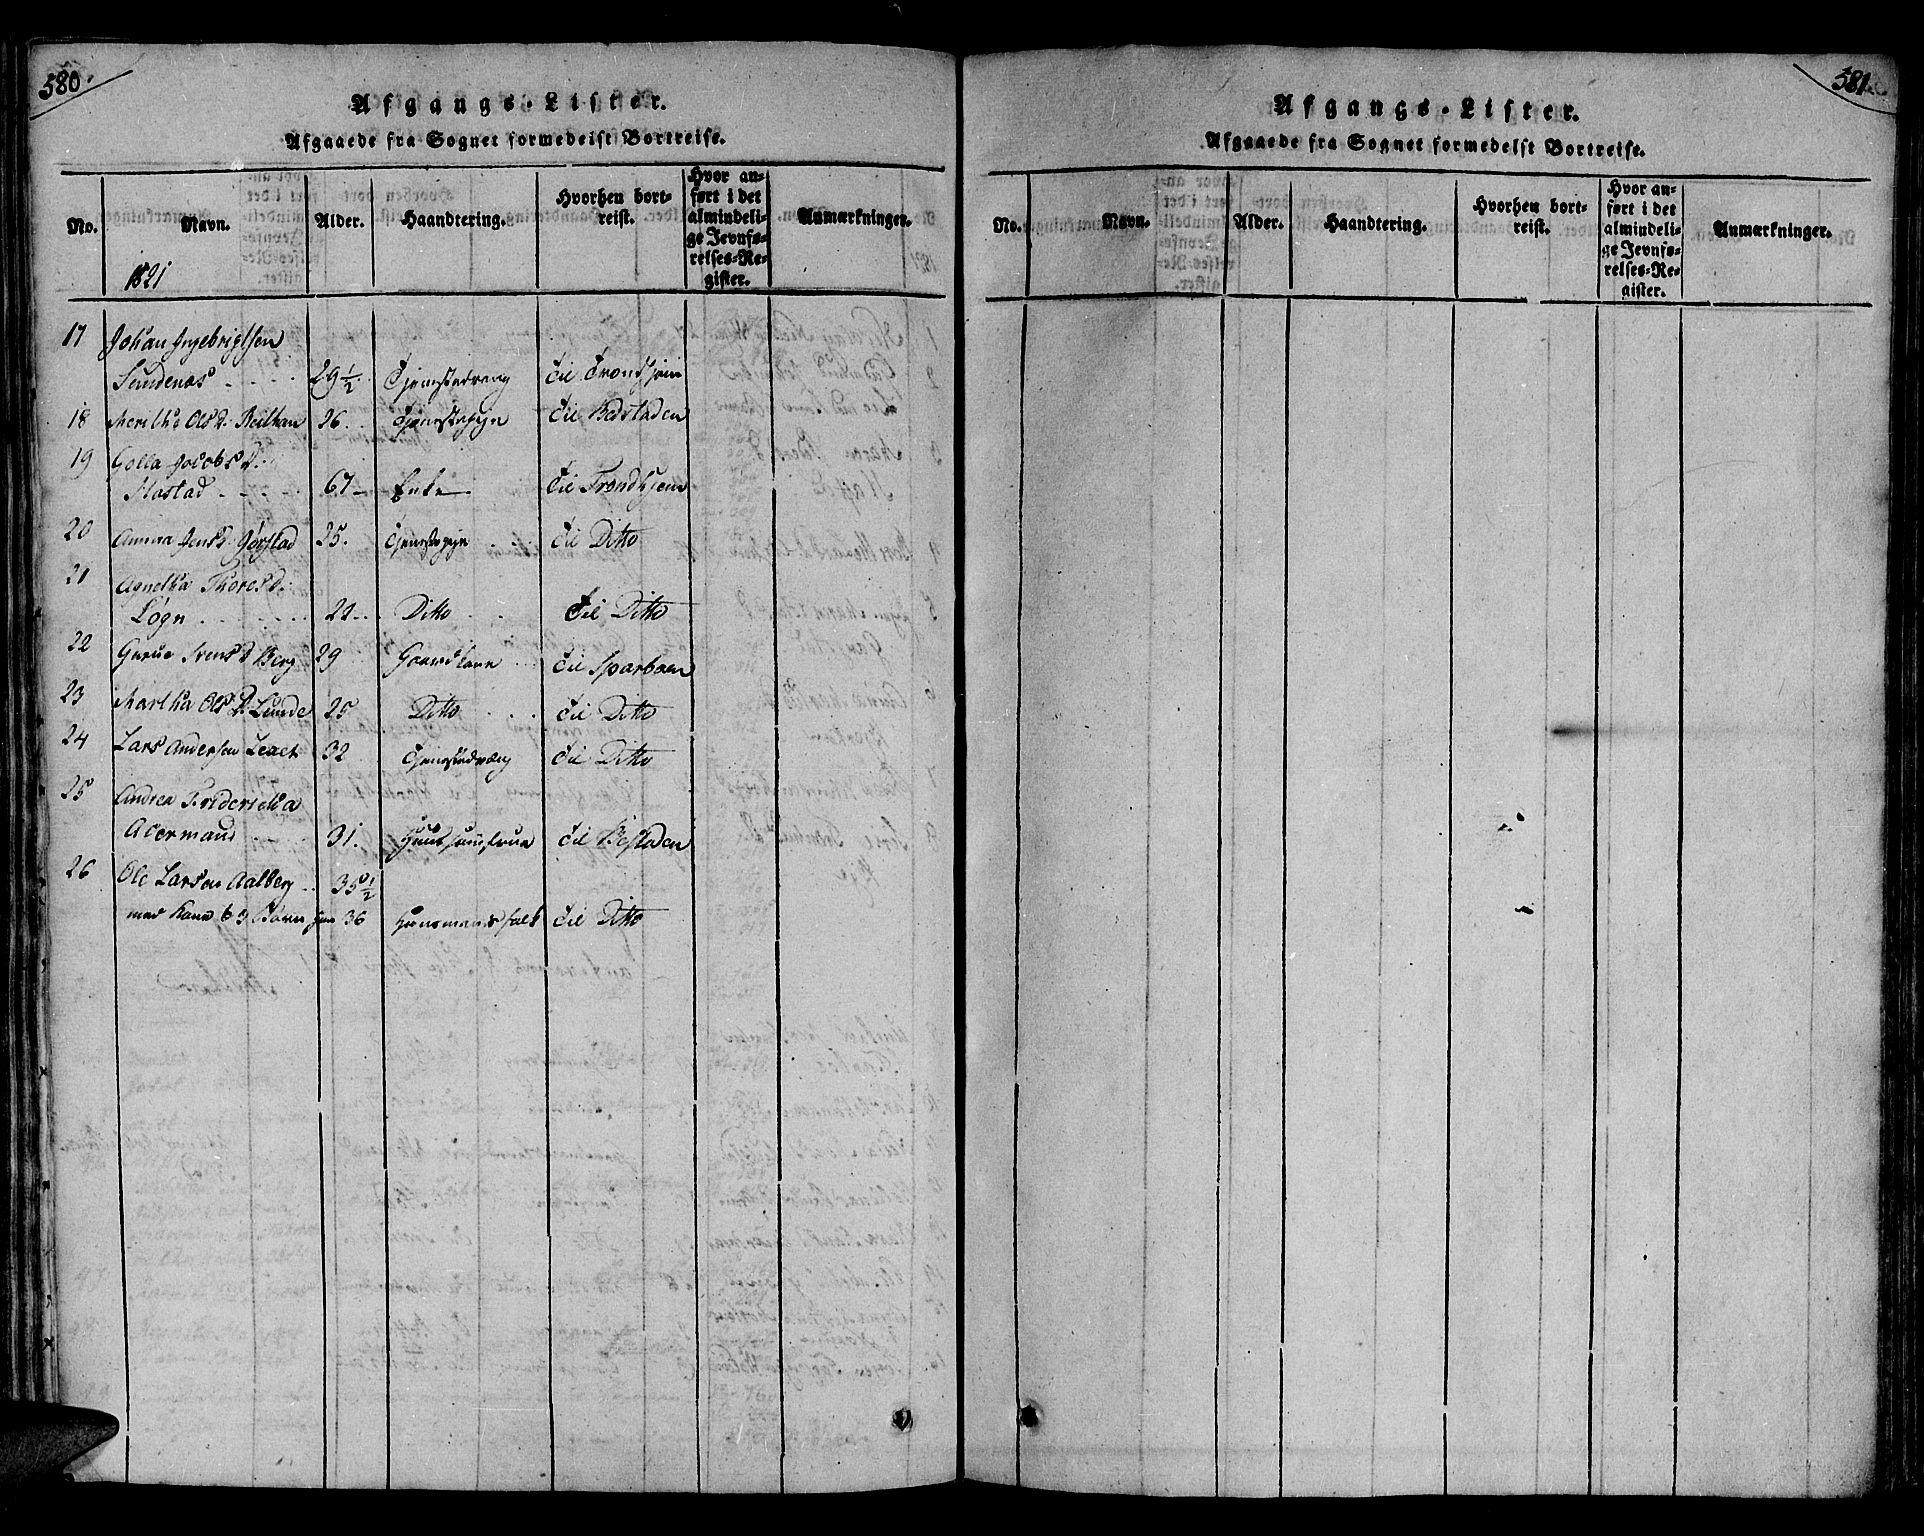 580.
Afgangs-Lister.
Afgaaede fra Sognet formedelst Bortreise.
No.
Navn.
Alder.
Haandtering.
Hvorhen bort-
reist.
Hvor an-
ført i det
almindeli-
ge Jevnfø-
relses-Re-
gister.
Anmærkninger.
1821
17 Johan Ingebrigtsen
Sundenæs 29½ Tjenestedreng Til Trondhjem
18 Merethe Olsd. 26. Tjenestepige Til
19 Golla Jacobsd.
Mostad 67 Enke Til Trondhjem
20 Anna Jensd. 25. Tjenestepige Til Ditto
21 Agnetha Thoresd.
Løgn 22 Ditto Til Ditto
22 Gurue Svensd Berg 29 Til Sparboen
23 Martha Olsd. Lunde 25 Ditto Til Ditto
24 Lars Andersen 32 Tjenestedreng Til Ditto
25 Andrea Fridericha
Acermand 31. Huusjomfrue Til
26 Ole Larsen Aalberg 35½
med Kone & 3 Børn hun 36 Huusmandsfolk Til Ditto
581.
Afgangs-Lister.
Afgaaede fra Sognet formedelst Bortreise.
No.
Navn.
Alder.
Haandtering.
Hvorhen bort-
reist.
Hvor an-
ført i det
almindeli-
ge Jevnfø-
relses-Re-
gister.
Anmærkninger.